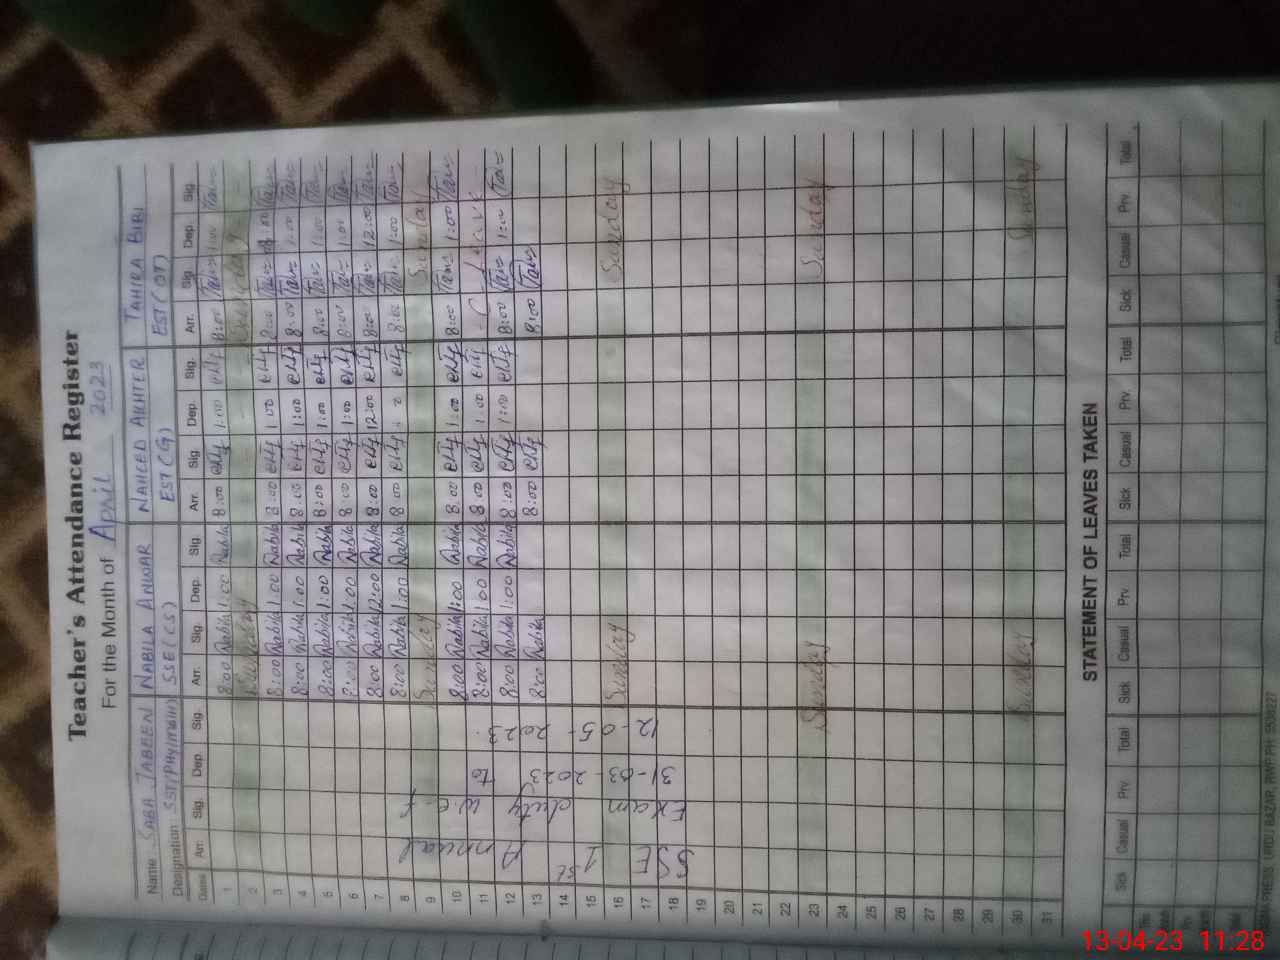 Teacher's Attendance Register
For the Month of April 2023
Name: SABA JABEEN NABILA ANWAR NAHEED AKHTER TAHIRA BIBI
Designation: SST(PHY/Math) SSE(CS) EST(G) EST(OT)
Dates Arr. Sig. Dep. Sig. Arr. Sig. Dep. Sig. Arr. Sig. Dep. Sig. Arr. Sig. Dep. Sig.
1 8:00 Nabila 1:00 Nabila 8:00 1:00 8:00 1:00
2 Sunday
3 8:00 Nabila 1:00 Nabila 8:00 1:00 8:00
4 8:00 Nabila 1:00 Nabila 8:00 1:00 8:00 1:00
5 8:00 Nabila 1:00 Nabila 8:00 1:00 8:00 1:00
6 8:00 Nabila 1:00 Nabila 8:00 1:00 8:00 1:00
7 8:00 Nabila 12:00 Nabila 8:00 12:00 8:00 12:00
8 8:00 Nabila 1:00 Nabila 8:00 8:00 1:00
9 Sunday Sunday
10 8:00 Nabila 1:00 Nabila 8:00 1:00 8:00 1:00
11 8:00 Nabila 1:00 Nabila 8:00 1:00 Leave
12 8:00 Nabila 1:00 Nabila 8:00 1:00 8:00 1:00
13 8:00 Nabila 8:00 8:00
14
15
16 Sunday Sunday
17
18
19
20
21
22
23 Sunday Sunday
24
25
26
27
28
29
30 Sunday Sunday
31
SSE 1st Annual
Exam duty w.e.f
31-03-2023 to
12-05-2023.
STATEMENT OF LEAVES TAKEN
Sick Casual Prv Total Sick Casual Prv Total Sick Casual Prv. Total Sick Casual Prv Total
PRESS URDU BAZAR, RWP. PH: 5539227
13-04-23 11:28